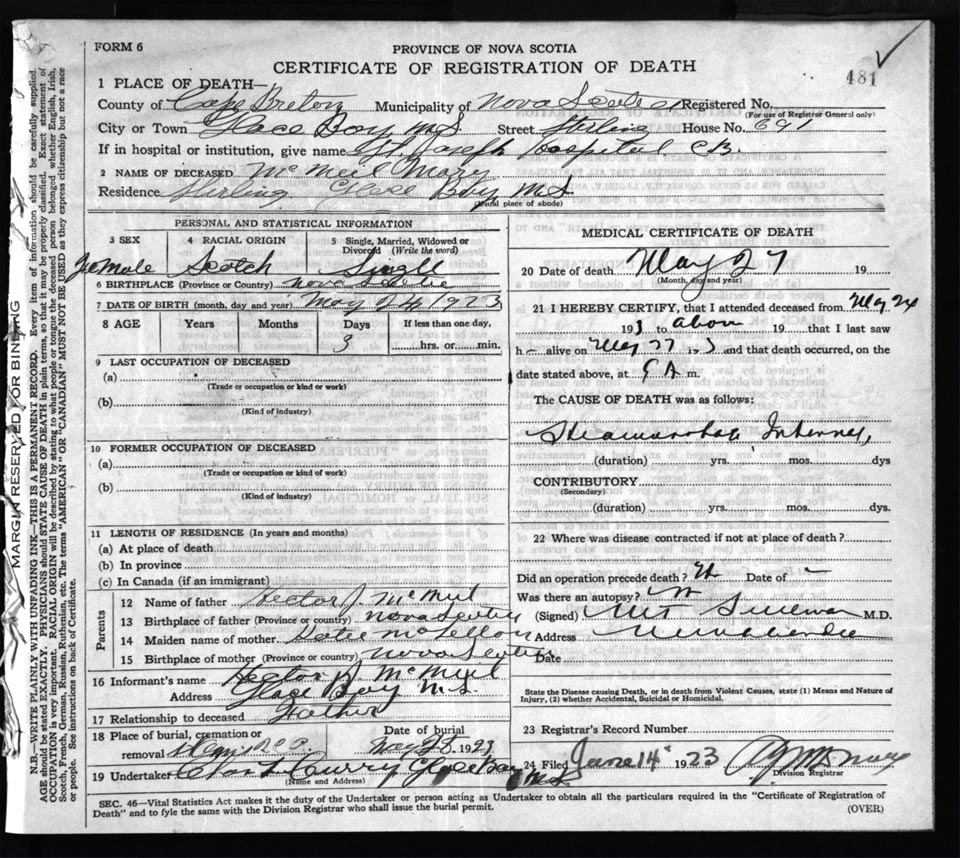 FORM 6
PROVINCE OF NOVA SCOTIA
CERTIFICATE OF REGISTRATION OF DEATH
481
1 PLACE OF DEATH—
County of Cape Breton Municipality of Nova Scotia Registered No.
(For use of Registrar General only)
City or Town Glace Bay N.S Street Sterling House No. 691
If in hospital or institution, give name St. Joseph Hospital C.B.
2 NAME OF DECEASED McNeil Mary
Residence Sterling Glace Bay N.S
(Usual place of abode)
PERSONAL AND STATISTICAL INFORMATION
3 SEX 4 RACIAL ORIGIN 5 Single, Married, Widowed or Divorced (Write the word)
Female Scotch Single
6 BIRTHPLACE (Province or Country) Nova Scotia
7 DATE OF BIRTH (month, day and year) May 24 1923
8 AGE Years Months Days If less than one day,
3 hrs. or min.
9 LAST OCCUPATION OF DECEASED
(a)
(Trade or occupation or kind or work)
(b)
(Kind of industry)
10 FORMER OCCUPATION OF DECEASED
(a)
(Trade or occupation or kind or work)
(b)
(Kind of industry)
11 LENGTH OF RESIDENCE (In years and months)
(a) At place of death
(b) In province
(c) In Canada (if an immigrant)
Parents
12 Name of father Hector J. McNeil
13 Birthplace of father (Province or country) Nova Scotia
14 Maiden name of mother Katie McLellan
15 Birthplace of mother (Province or country) Nova Scotia
16 Informant's name Hector J. McNeil
Address Glace Bay N.S
17 Relationship to deceased Father
18 Place of burial, cremation or removal
Date of burial
May 28 1923
19 Undertaker Curry Glace Bay N.S
(Name and Address)
MEDICAL CERTIFICATE OF DEATH
20 Date of death May 27 19
(Month, day and year)
21 I HEREBY CERTIFY, that I attended deceased from May 24
193 to above 19 that I last saw
h alive on May 27 193 and that death occurred, on the
date stated above, at A m.
The CAUSE OF DEATH was as follows:
Internal
(duration) yrs. mos. dys
CONTRIBUTORY
(Secondary)
(duration) yrs. mos. dys.
22 Where was disease contracted if not at place of death?
Did an operation precede death? Date of
Was there an autopsy?
(Signed) M.D.
Address
Date
State the Disease causing Death, or in death from Violent Causes, state (1) Means and Nature of
Injury, (2) whether Accidental, Suicidal or Homicidal.
23 Registrar's Record Number
24 Filed June 14 1923
Division Registrar
SEC. 46—Vital Statistics Act makes it the duty of the Undertaker or person acting as Undertaker to obtain all the particulars required in the "Certificate of Registration of
Death" and to fyle the same with the Division Registrar who shall issue the burial permit.
(OVER)
MARGIN RESERVED FOR BINDING
N.B.—WRITE PLAINLY WITH UNFADING INK—THIS IS A PERMANENT RECORD. Every item of information should be carefully supplied.
AGE should be stated EXACTLY. PHYSICIANS should STATE CAUSE OF DEATH in plain terms, so that it may be properly classified. Exact statement of
OCCUPATION is very important. RACIAL ORIGIN will be described by stating to what people or tongue the deceased person belonged whether English, Irish,
Scotch, French, German, Russian, Ruthenian, etc. The terms "AMERICAN" OR "CANADIAN" MUST NOT BE USED as they express citizenship but not a race
or people. See instructions on back of Certificate.